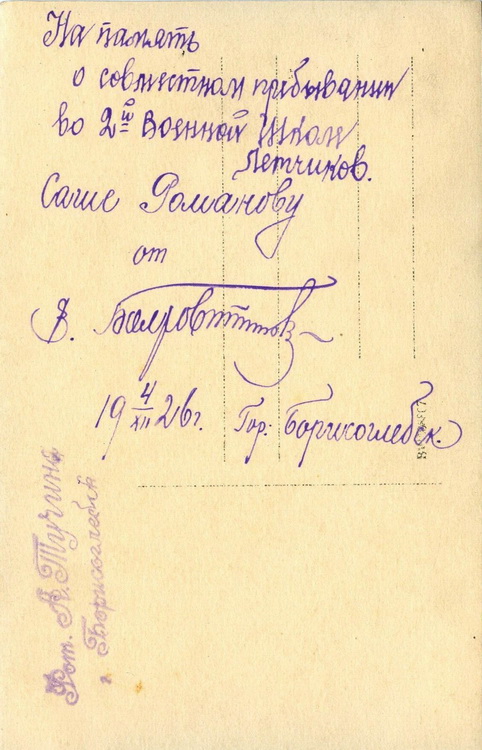 На память
о совместном пребывании
во 2ой Военной Школе
Летчиков.
Саше Романову
от
В.
19 4/XII 26 г. Гор: Борисоглебск.
Фот. А. Тучина
г. Борисоглебск